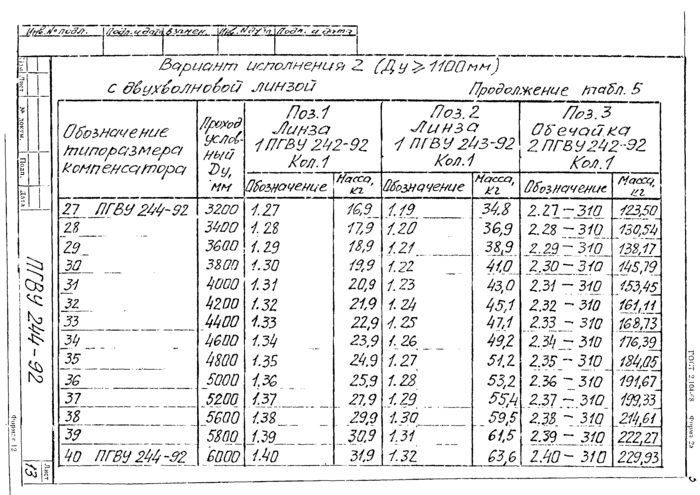 Инв.№ подл. Подп. и дата Взамен. Инв.№ дубл. Подп. и дата
Вариант исполнения 2 (Ду ≥ 1100мм)
с двухволновой линзой
Продолжение табл. 5
Обозначение типоразмера компенсатора
Проход условный Ду, мм
Поз.1 Линза 1 ПГВУ 242-92 Кол.1
Поз.2 Линза 1 ПГВУ 243-92 Кол.1
Поз.3 Обечайка 2 ПГВУ 242-92 Кол.1
Обозначение Масса, кг Обозначение Масса, кг Обозначение Масса, кг
27 ПГВУ 244-92 3200 1.27 16,9 1.19 34.8 2.27-310 123,50
28 3400 1.28 17,9 1.20 36,9 2.28-310 130,54
29 3600 1.29 18,9 1.21 38,9 2.29-310 138,17
30 3800 1.30 19,9 1.22 41,0 2.30-310 145,79
31 4000 1.31 20,9 1.23 43,0 2.31-310 153,45
32 4200 1.32 21,9 1.24 45,1 2.32-310 161,11
33 4400 1.33 22,9 1.25 47,1 2.33-310 168,73
34 4600 1.34 23,9 1.26 49,2 2.34-310 176,39
35 4800 1.35 24,9 1.27 51,2 2.35-310 184,05
36 5000 1.36 25,9 1.28 53,2 2.36-310 191,67
37 5200 1.37 27,9 1.29 55,4 2.37-310 199,33
38 5600 1.38 29,9 1.30 59,5 2.38-310 214,61
39 5800 1.39 30,9 1.31 61,5 2.39-310 222,27
40 ПГВУ 244-92 6000 1.40 31,9 1.32 63,6 2.40-310 229,93
Лист № докум. Подп. Дата
ПГВУ 244-92
Лист
13
Формат 12
ГОСТ 2.104-68 Форма 2а